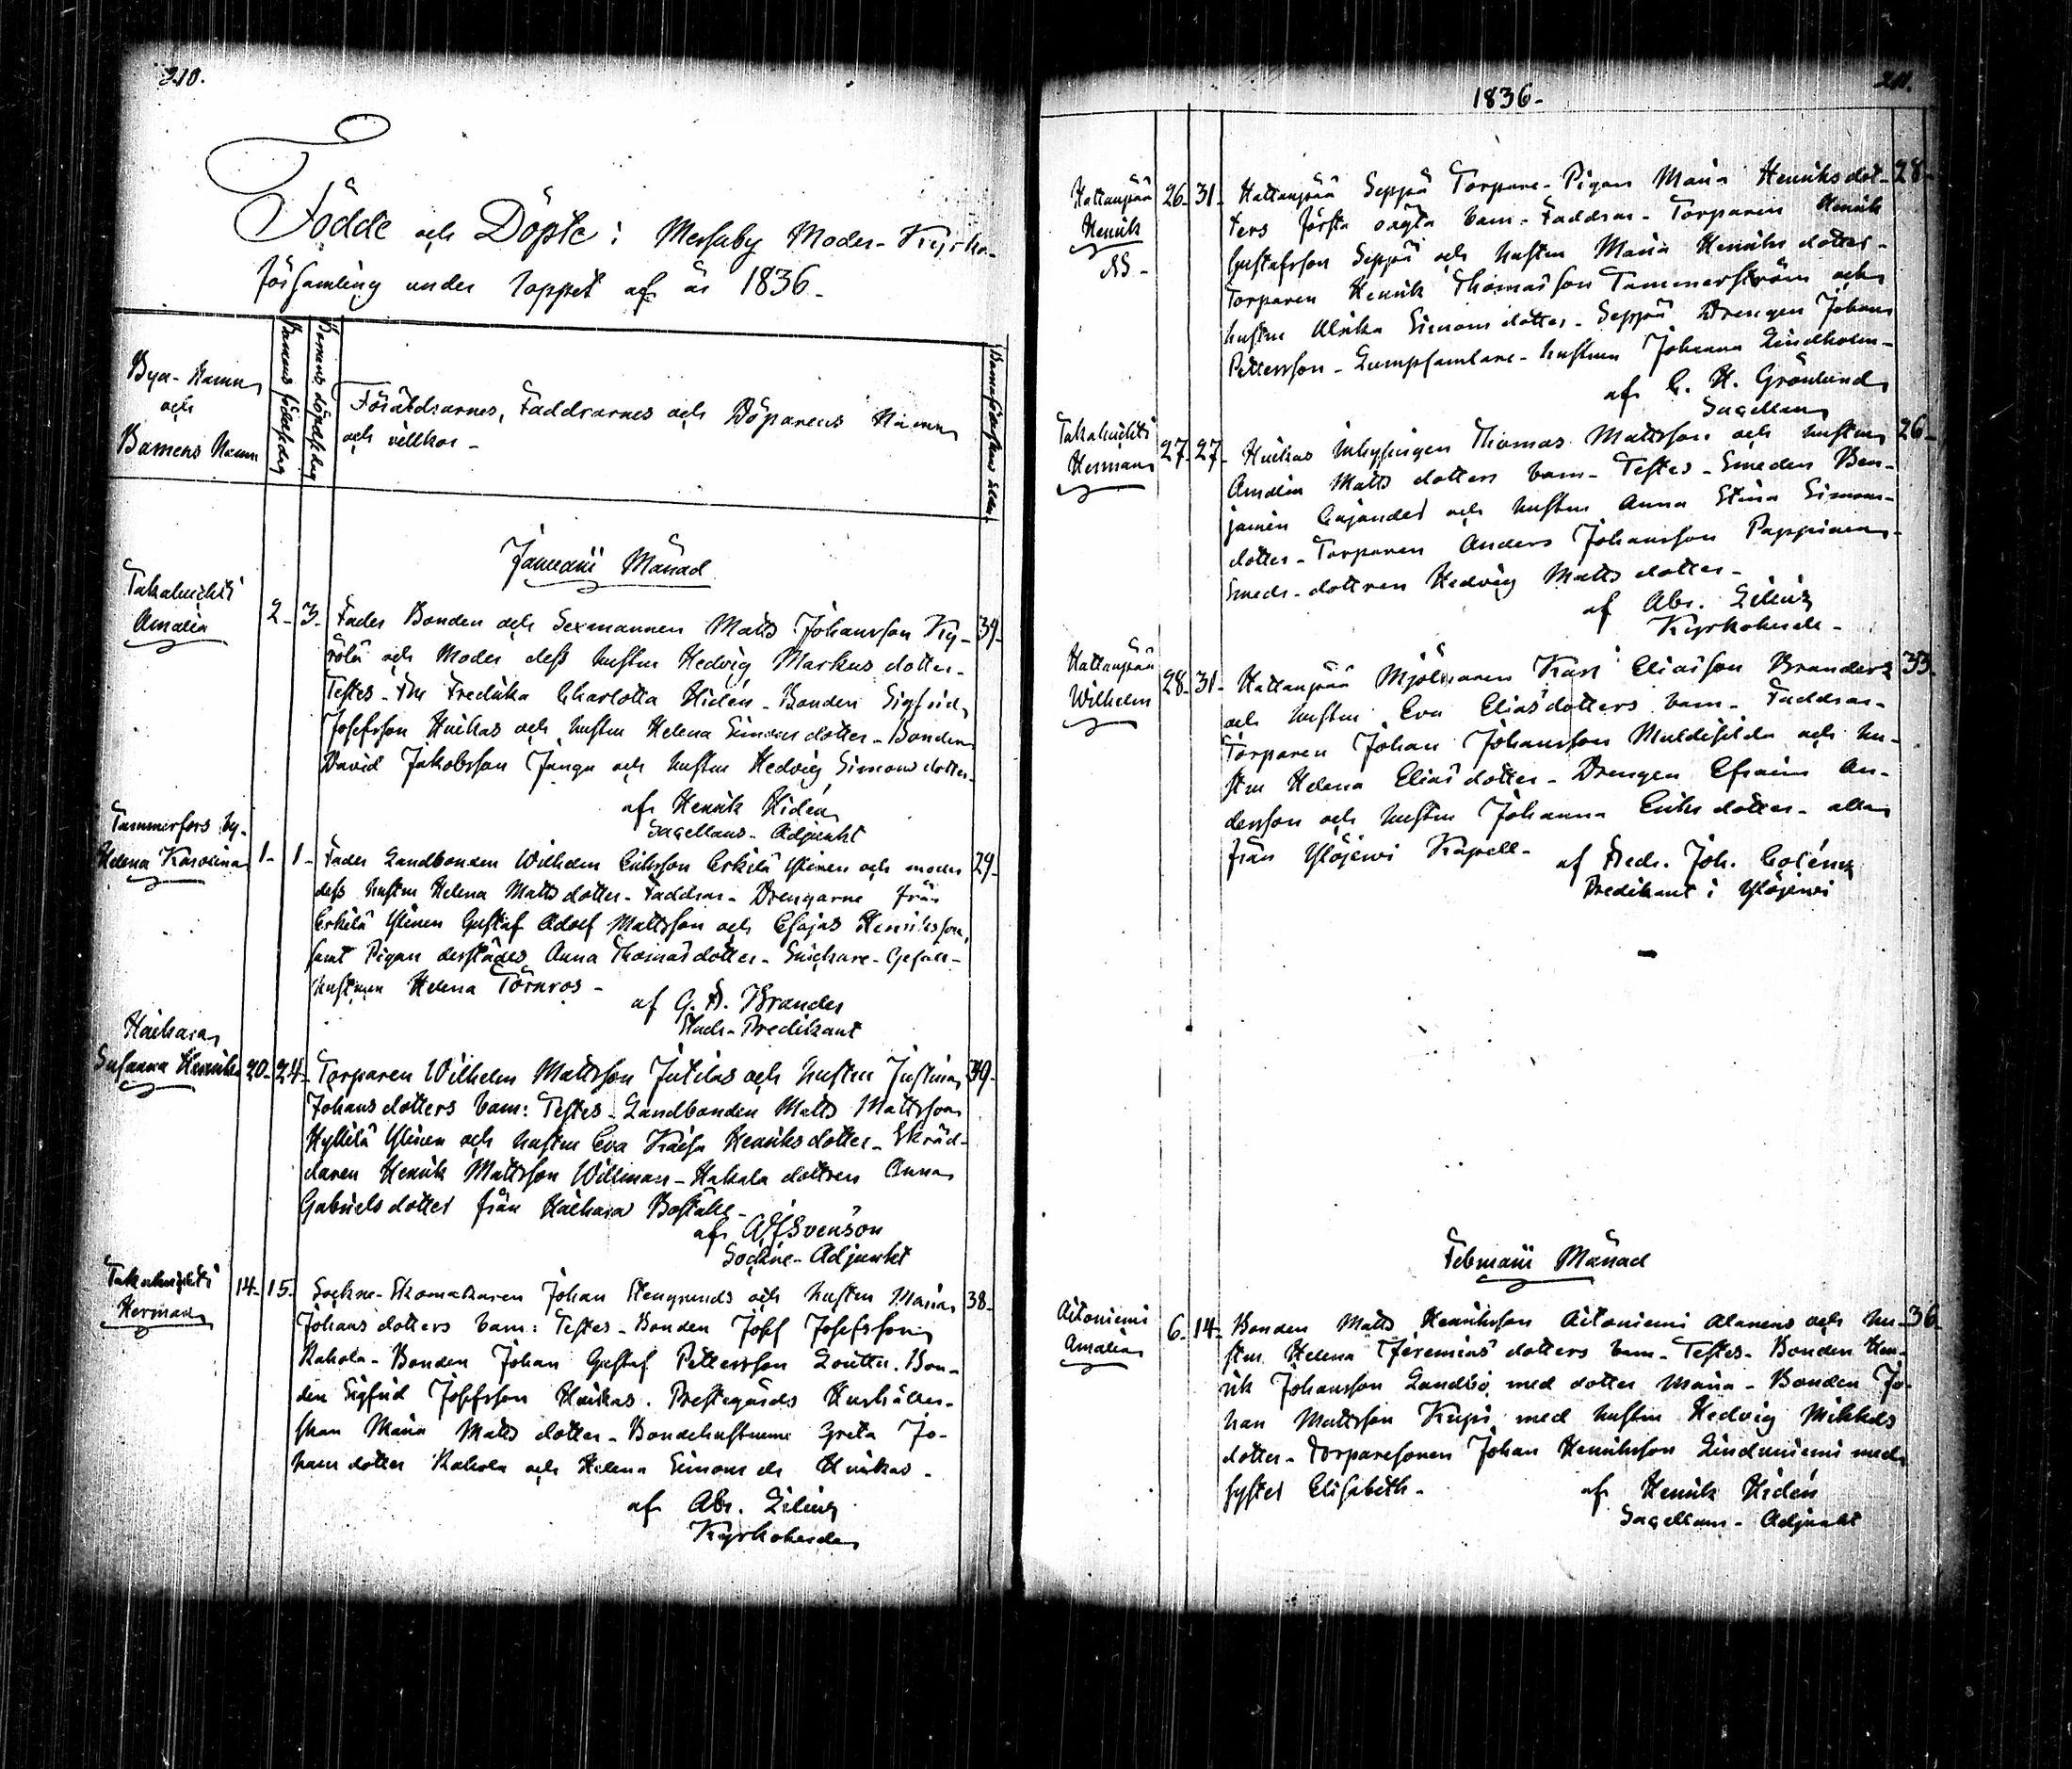 210.
Födde och Döpte i Messuby Moder-Kyrko-
församling under loppet af år 1836.
Bya-Namn
och
Barnens Namn
Barnens födelsedag
Barnens döpelsedag
Föräldrarnes, Faddrarnes och Döparens Namn
och villkor-
Barnsföderskans ålder.
Januarii Månad
Takahuchti
Amalia
2-3. Fader Bonden och Sexmannen Matts Johansson Ky- 39-
rölä och Moder dess hustru Hedvig Markus dotter-
Testes- Fru Fredrika Charlotta Hidén- Bonden Sigfrid
Josefsson Huikas och hustru Helena Simons dotter- Bonden
David Jakobsson Janga och hustru Hedvig Simons dotter-
af Henrik Hidén
Sacellans-Adjunkt
Tammerfors by-
Helena Karolina 1-1- Fader Landbonden Wilhelm Eriksson Erkilä Ylinen och moder 29-
dess hustru Helena Matts dotter- Faddrar- Drengarne från
Erkilä Ylinen Gustaf Adolf Mattsson och Esajas Henriksson,
samt Pigan derstädes Anna Thomas dotter- Snickare-Gesäll-
hustrun Helena Törnros-
af G. A. Brander
Stads-Predikant
Haihara
Susanna Henrika 20-24- Torparen Wilhelm Mattsson Jutilas och hustru Justina 39-
Johans dotters barn: Testes- Landbonden Matts Mattsson
Hyllilä Ylinen och hustru Eva Kaisa Henriks dotter- Skräd-
daren Henrik Mattsson Willman- Hakala dottren Anna
Gabriels dotter från Haihara Boställe-
af A Svenson
Sockne-Adjunkt
Takahuchti
Herman
14-15- Sockne-Skomakaren Johan Stengrunds och hustru Maria 38-
Johans dotters barn: Testes- Bonden Josef Josefsson
Kahola- Bonden Johan Gustaf Pettersson Loutti- Bon-
den Sigfrid Josefsson Huikas. Prestegårds Hushåller-
skan Maria Matts dotter- Bondehustrurne Greta Jo-
hans dotter Kahola och Helena Simons dr Huikas-
af Abr. Lilius
Kyrkoherde
1836-
211.
Hattanpää
Henrik
NB-
26-31- Hattanpää Seppä Torpare-Pigan Maria Henriksdot- 28-
ters första oägta barn- Faddrar- Torparen Henrik
Gustafsson Seppä och hustru Maria Henriks dotter-
Torparen Henrik Thomasson Tammerström och
hustru Ulrika Simons dotter- Seppä Drengen Johan
Pettersson- Lumpsamlare-hustrun Johanna Lindholm-
af C. H. Grönlund
Sacellan
Takahuchti
Herman
27-27- Huikas Inhysingen Thomas Mattsson och hustru 26-
Amalia Matts dotters barn- Testes- Smeden Ben-
jamin Cajander och hustru Anna Stina Simons-
dotter- Torparen Anders Johansson Pappinen-
Smeds-dottren Hedvig Matts dotter-
af Abr. Lilius
Kyrkoherde-
Hattanpää
Wilhelm
28-31- Hattanpää Mjölnaren Karl Eliasson Branders 33-
och hustru Eva Elias dotters barn- Faddrar-
Torparen Johan Johansson Muldisilda och hu-
stru Helena Elias dotter- Drengen Efraim An-
dersson och hustru Johanna Eriks dotter- alla
från Ylöjerwi Kapell-
af Fredr. Joh. Coléns
Predikant i Ylöjerwi
Februarii Månad
Aitoniemi
Amalia
6-14- Bonden Matts Henriksson Aitoniemi Alanens och hu- 36-
stru Helena Jeremias dotters barn- Testes- Bonden Hen-
rik Johansson Landbo med dotter Maria- Bonden Jo-
han Mattsson Kupi med hustru Hedvig Mikkels
dotter- Torparesonen Johan Henriksson Lindaniemi med
syster Elisabeth-
af Henrik Hidén
Sacellans-Adjunkt